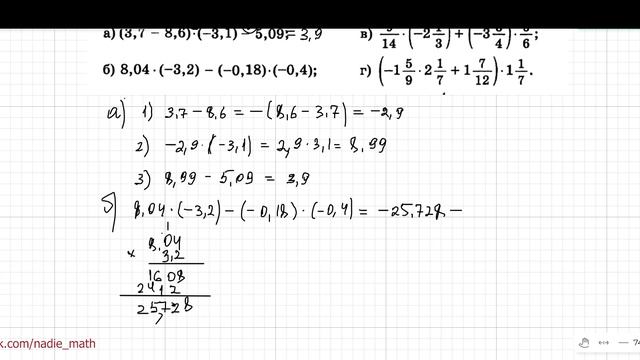 а) (3,7 − 8,6)·(−3,1) − 5,09; = 3,9
в) /14 · (−2 /3) + (−3 /4) · /6;
б) 8,04·(−3,2) − (−0,18)·(−0,4);
г) (−1 5/9 · 2 1/7 + 1 7/12) · 1 1/7.
а) 1) 3,7 − 8,6 = −(8,6 − 3,7) = −2,9
2) −2,9 · (−3,1) = 2,9 · 3,1 = 8,99
3) 8,99 − 5,09 = 3,9
б) 8,04 · (−3,2) − (−0,18) · (−0,4) = −25,728 −
1
8,04
× 3,2
1608
2412
25,728
k.com/nadie_math